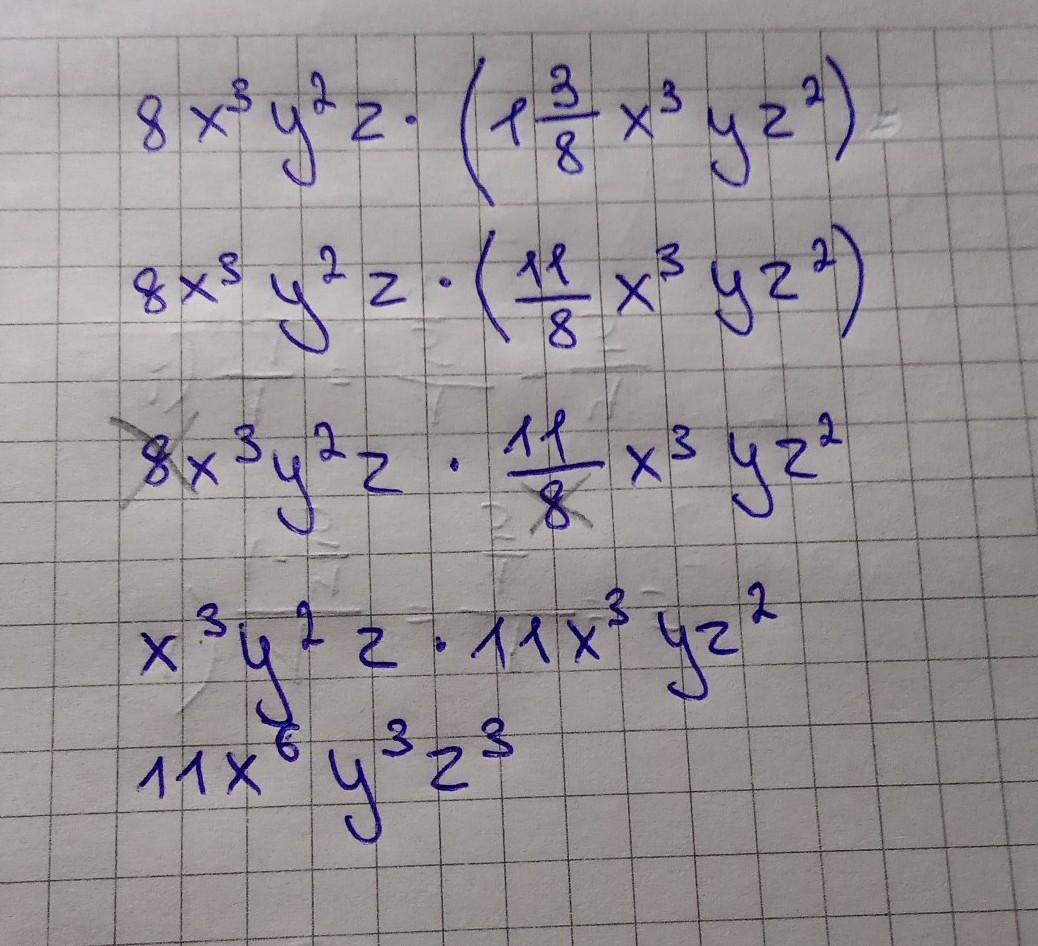 8x³y²z · (1 3/8 x³yz²)
8x³y²z · (11/8 x³yz²)
8x³y²z · 11/8 x³yz²
x³y²z · 11x³yz²
11x⁶y³z³